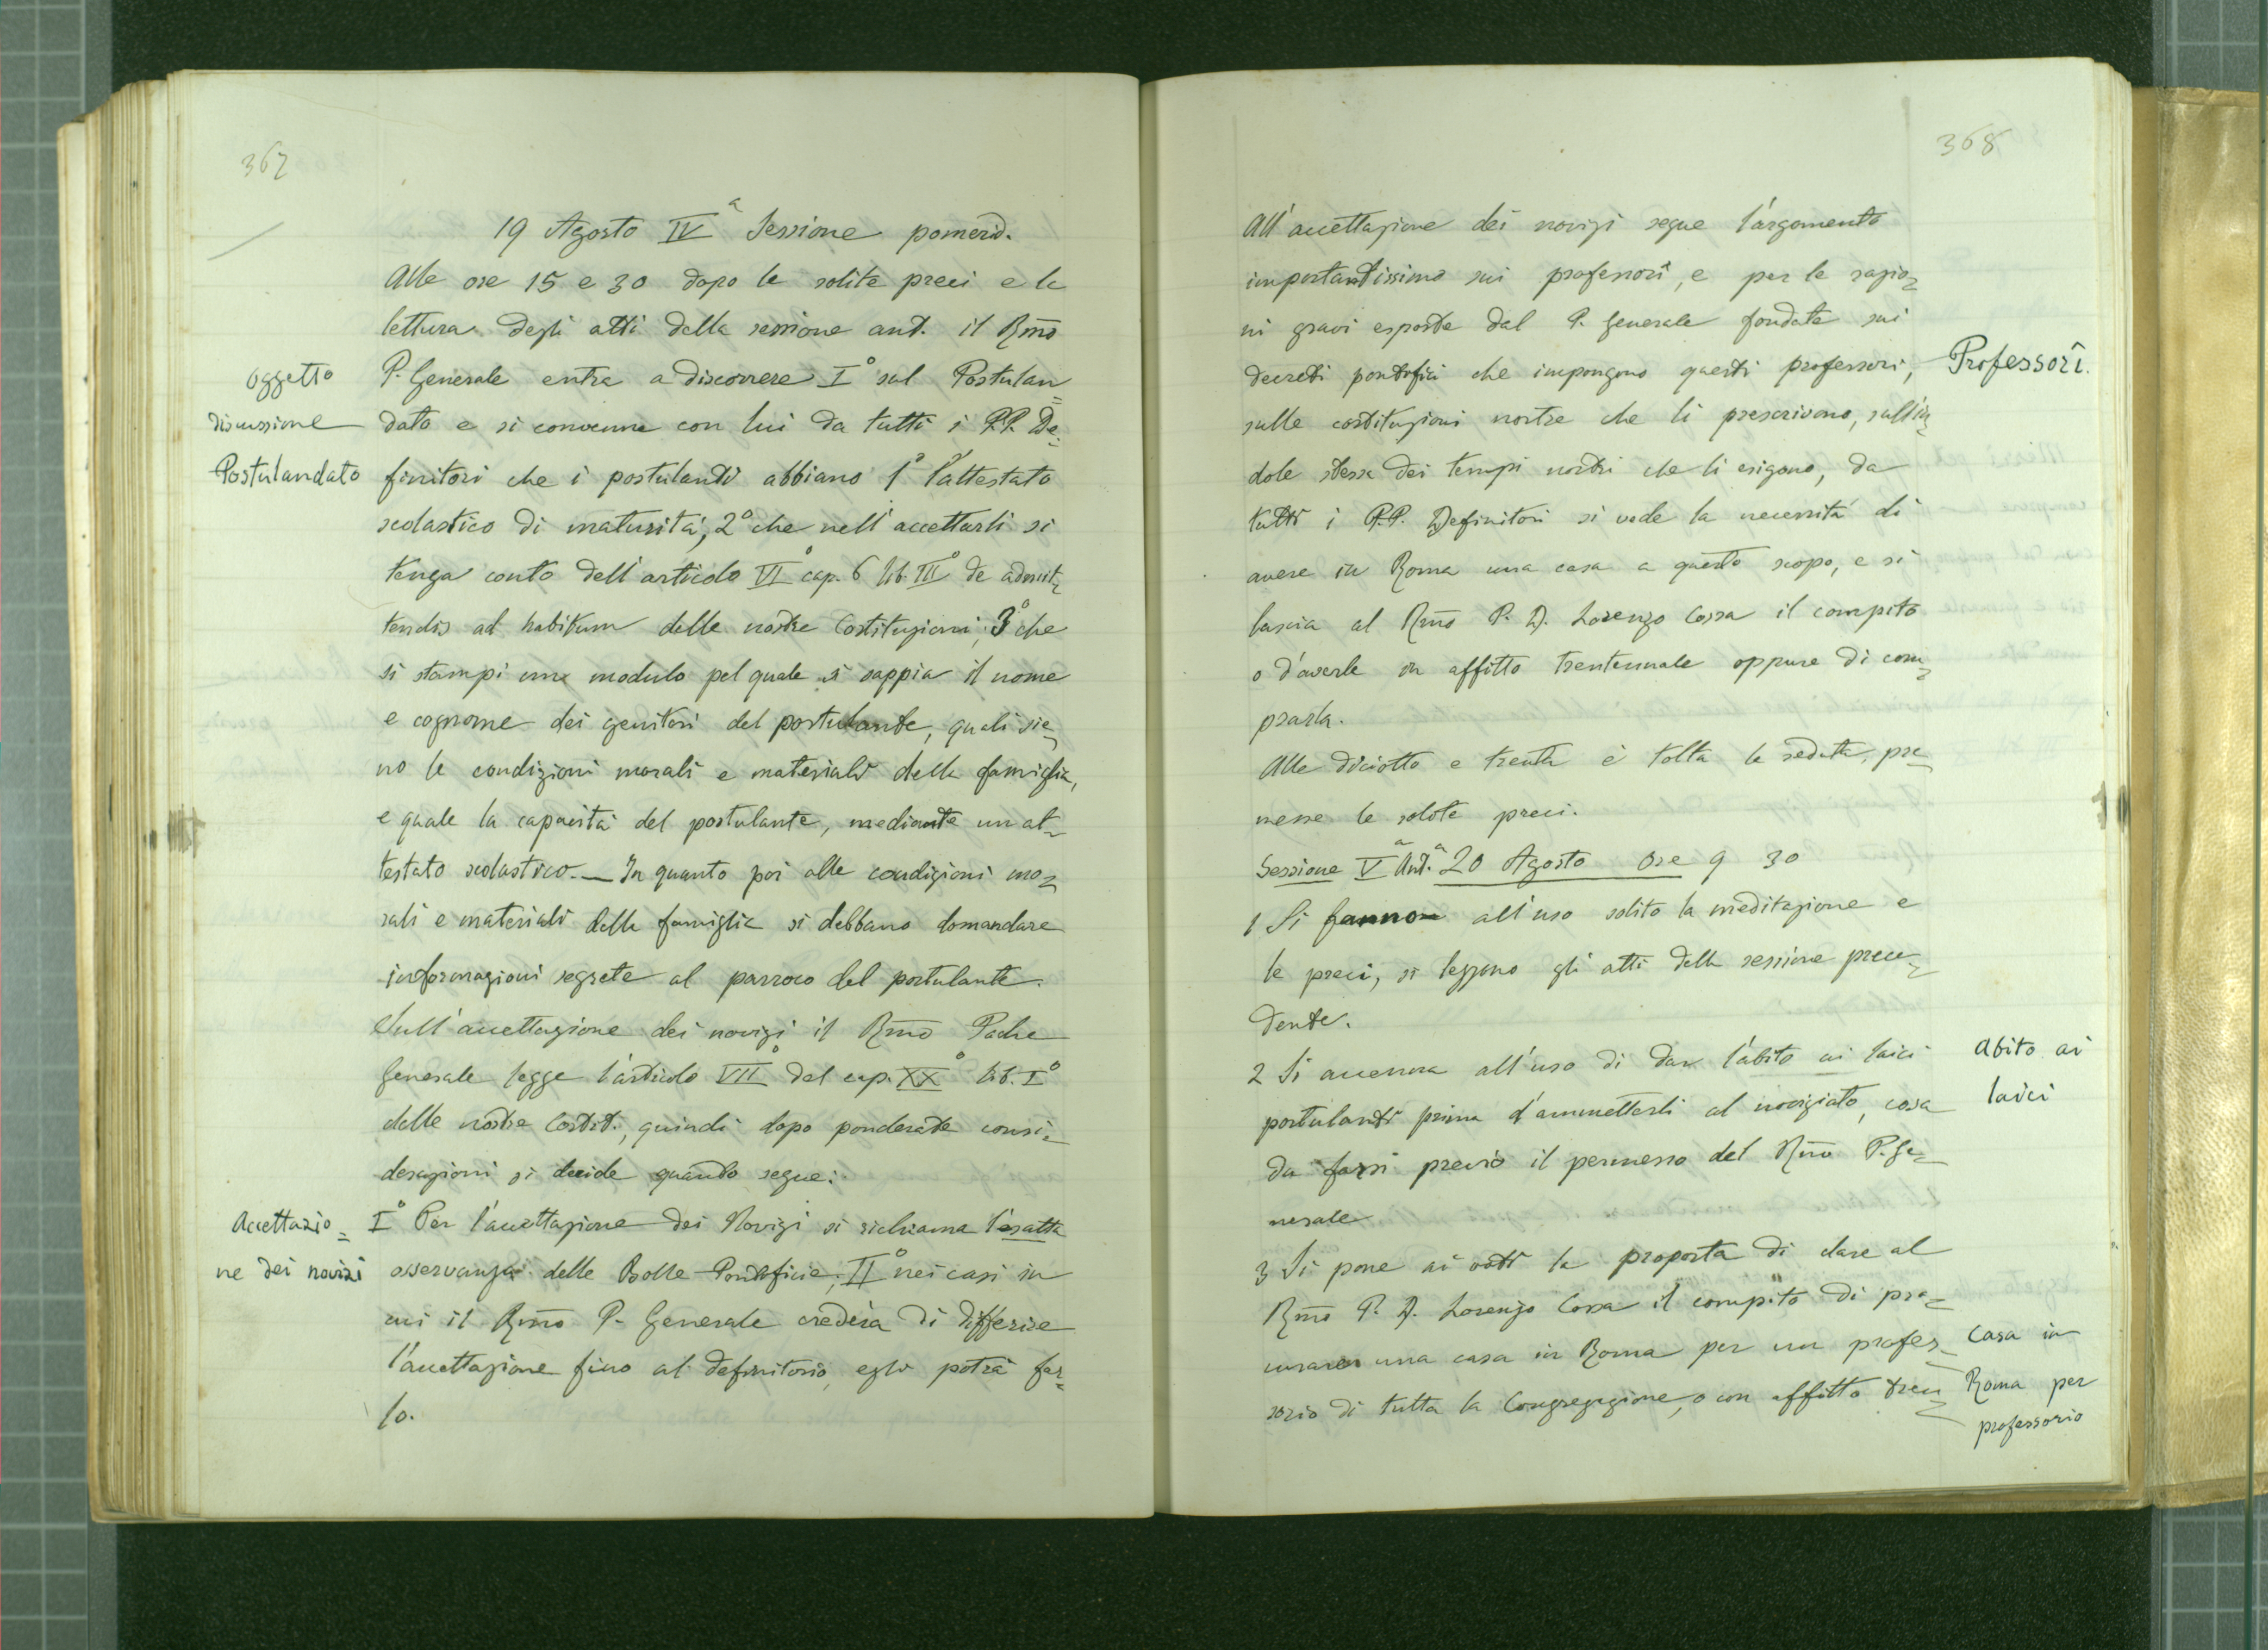 367
19 Agosto IVª Sessione pomerid.
Alle ore 15 e 30 dopo le solite preci e la
lettura degli atti della sessione ant. il Rmo
P. Generale entra a discorrere I° sul Postulan=
dato e si convenne con lui da tutti i P.P. De=
finitori che i postulanti abbiano 1° l'attestato
scolastico di maturità, 2° che nell'accettarli si
tenga conto dell'articolo VI° cap. 6 lib. III° de admit=
tendis ad habitum delle nostre Costituzioni, 3° che
si stampi un modulo pel quale si sappia il nome
e cognome dei genitori del postulante, quali sie=
no le condizioni morali e materiali della famiglia,
e quale la capacità del postulante, mediante un at=
testato scolastico. — In quanto poi alle condizioni mo=
rali e materiali della famiglia si debbano domandare
informazioni segrete al parroco del postulante.
Sull'accettazione dei novizi il Rmo Padre
Generale legge l'articolo VII° del cap. XX° lib. I°
delle nostre Costit., quindi dopo ponderate consi=
derazioni si decide quanto segue:
I° Per l'accettazione dei Novizi si richiama l'esatta
osservanza delle Bolle Pontificie; II° nei casi in
cui il Rmo P. Generale crederà di differire
l'accettazione fino al definitorio, egli potrà far=
lo.
oggetto
discussione
Postulandato
Accettazio=
ne dei novizi
368
All'accettazione dei novizi segue l'argomento
importantissimo sui professori, e per le ragio=
ni gravi esposte dal P. Generale fondate sui
decreti pontifici che impongono questi professori,
sulle costituzioni nostre che li prescrivono, sull'in=
dole stessa dei tempi nostri che li esigono, da
tutti i P.P. Definitori si vede la necessità di
avere in Roma una casa a questo scopo, e si
lascia al Rmo P. D. Lorenzo Cossa il compito
o d'averla in affitto trentennale oppure di com=
prarla.
Alle diciotto e trenta è tolta la seduta, pre=
messe le solite preci.
Sessione Vª Ant.ª 20 Agosto Ore 9 30
1 Si fanno all'uso solito la meditazione e
le preci, si leggono gli atti della sessione prece=
dente.
2 Si accenna all'uso di dar l'abito ai laici
postulanti prima d'ammetterli al noviziato, cosa
da farsi previo il permesso del Rmo P. Ge=
nerale
3 Si pone ai voti la proposta di dare al
Rmo P. D. Lorenzo Cossa il compito di pro=
curare una casa in Roma per un profes=
sorio di tutta la Congregazione, o con affitto tren=
Professori.
Abito ai
laici
Casa in
Roma per
professorio